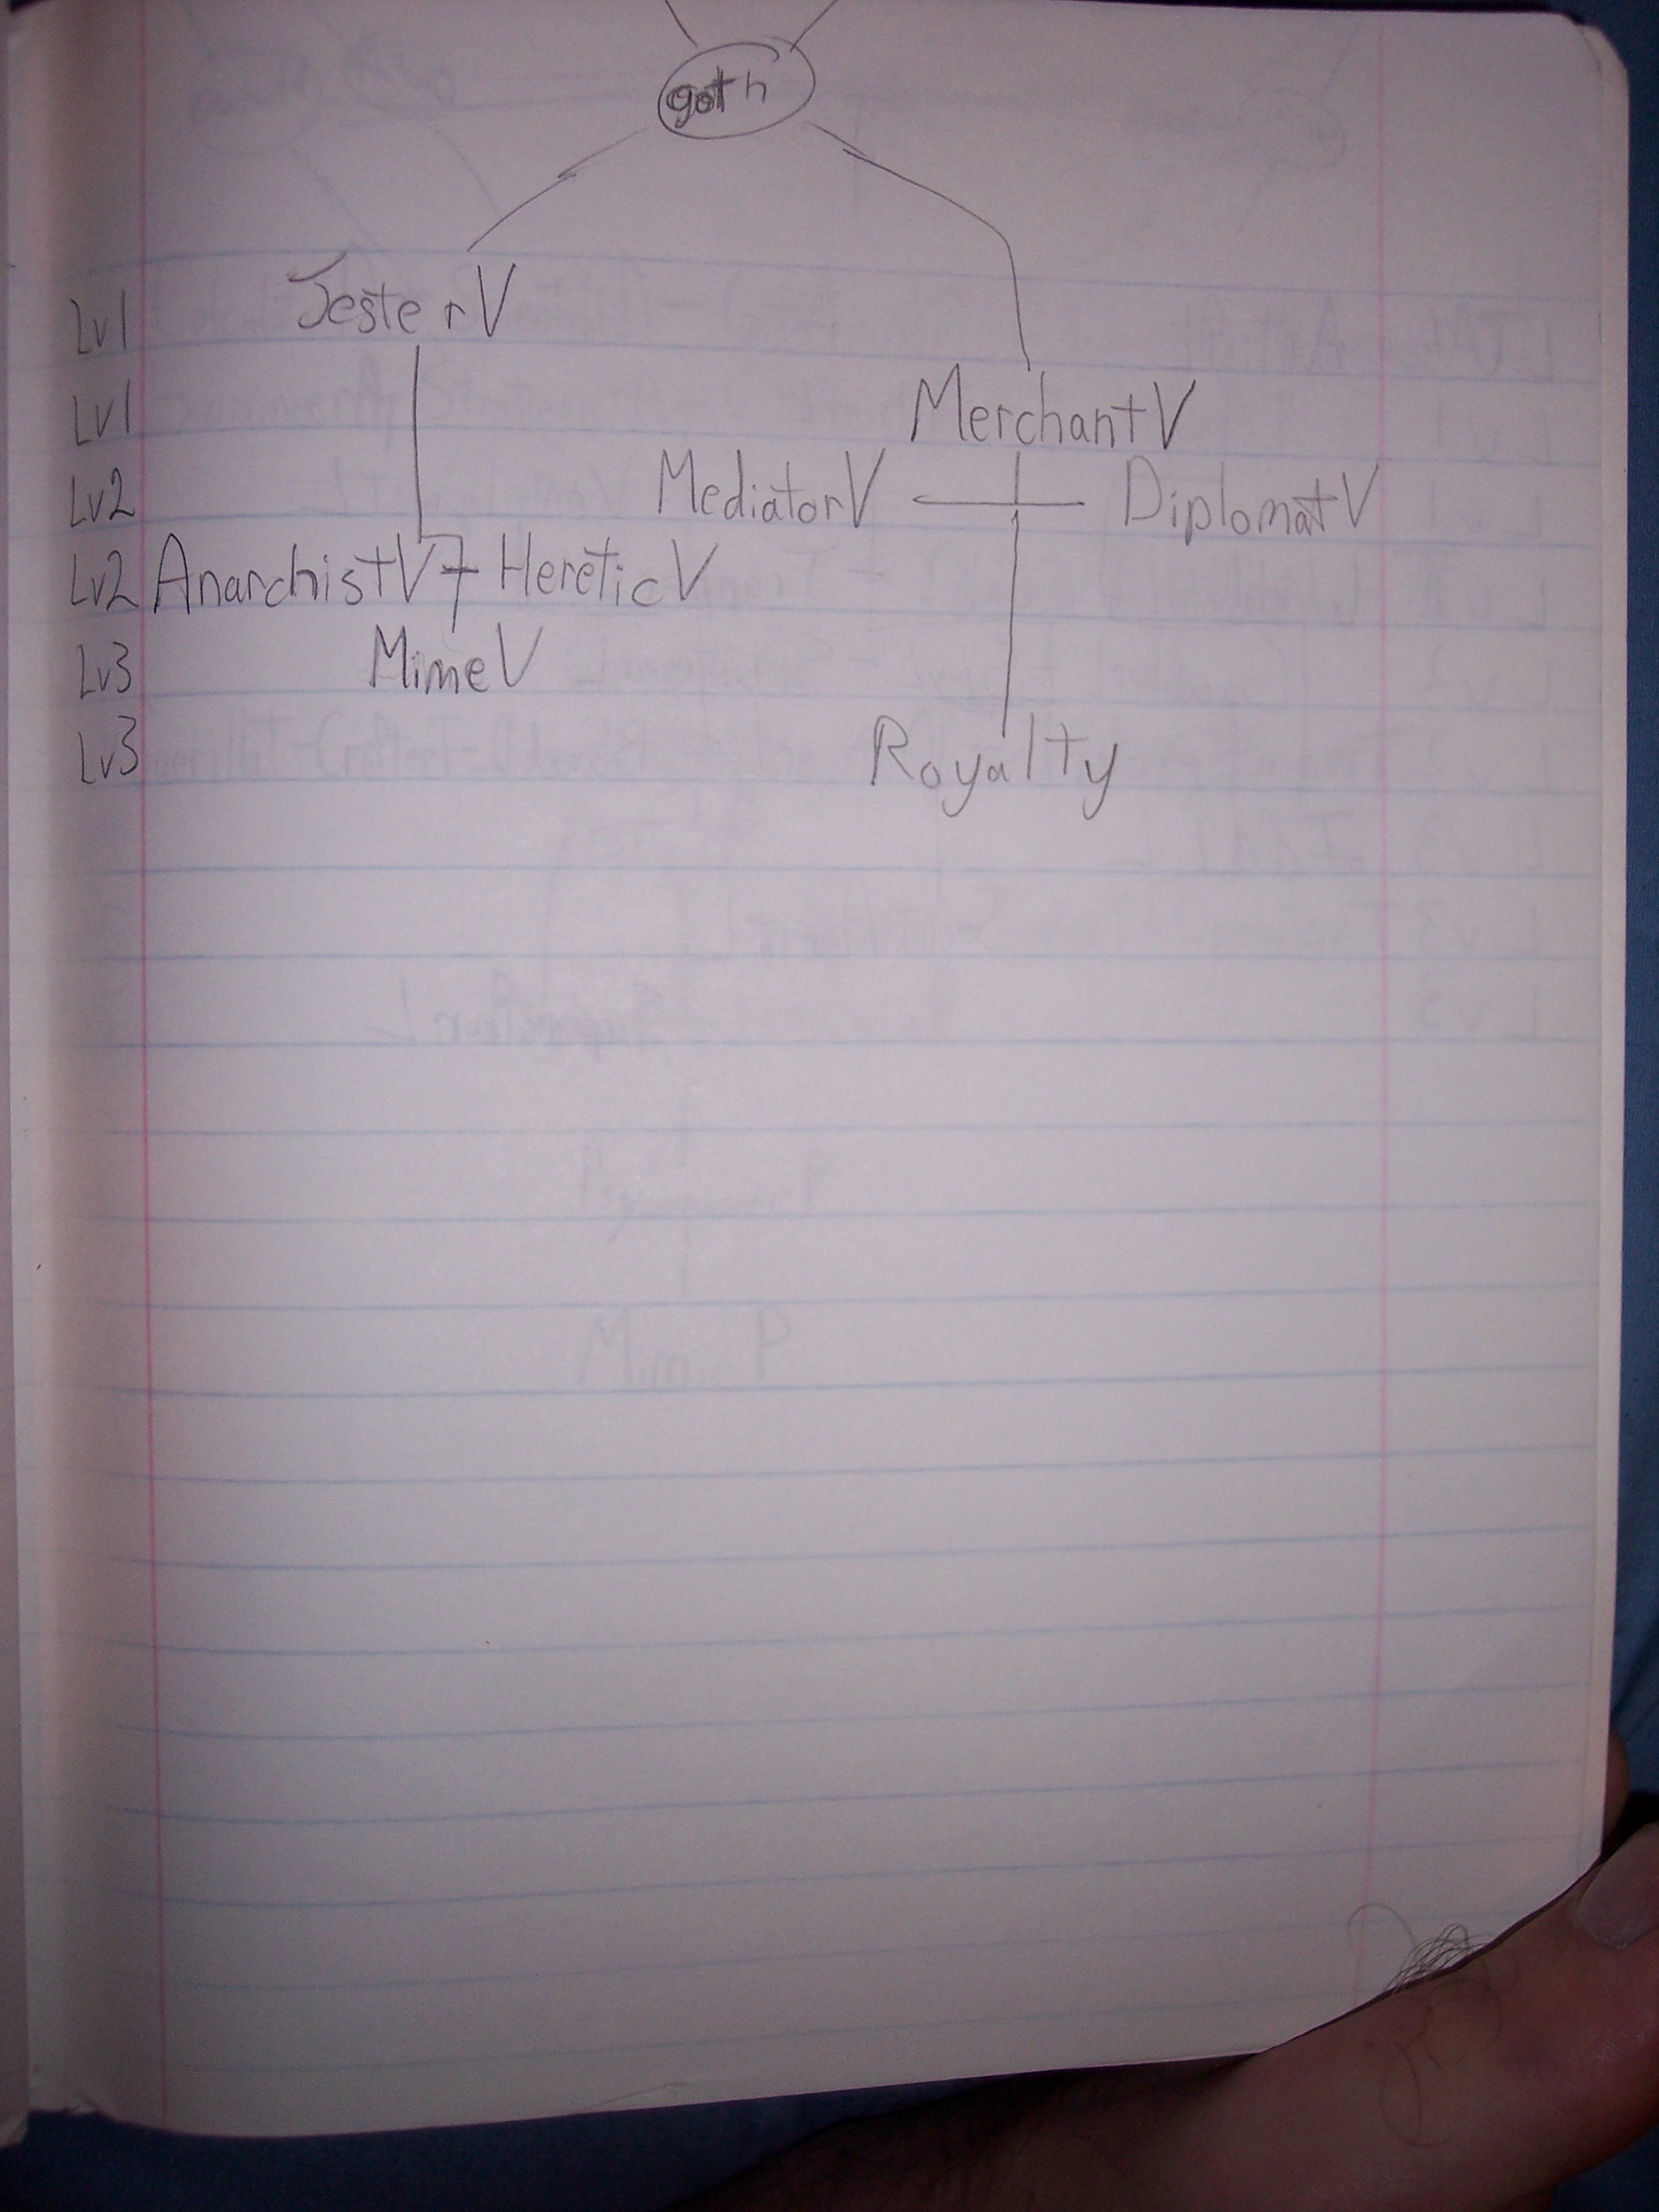 goth
Lv1 Jester V
Lv1 Merchant V
Lv2 Mediator V Diplomat V
Lv2 Anarchist V Heretic V
Lv3 Mime V
Lv3 Royalty